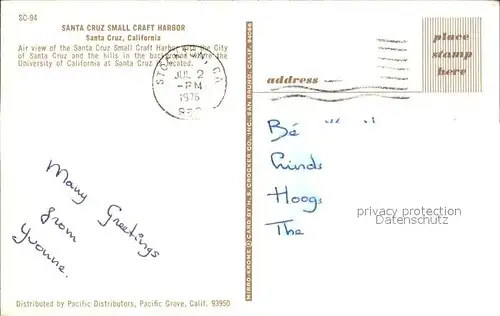 SC-94
SANTA CRUZ SMALL CRAFT HARBOR
Santa Cruz, California
Air view of the Santa Cruz Small Craft Harbor with the City
of Santa Cruz and the hills in the background where the
University of California at Santa Cruz is located.
JUL 2
PM
1976
place
stamp
here
address
Many Greetings
from
Yvonne.
Bé
Hoogs
The
privacy protection
Datenschutz
MIRRO-KROME ® CARD BY H. S. CROCKER CO., INC., SAN BRUNO, CALIF. 94066
Distributed by Pacific Distributors, Pacific Grove, Calif. 93950